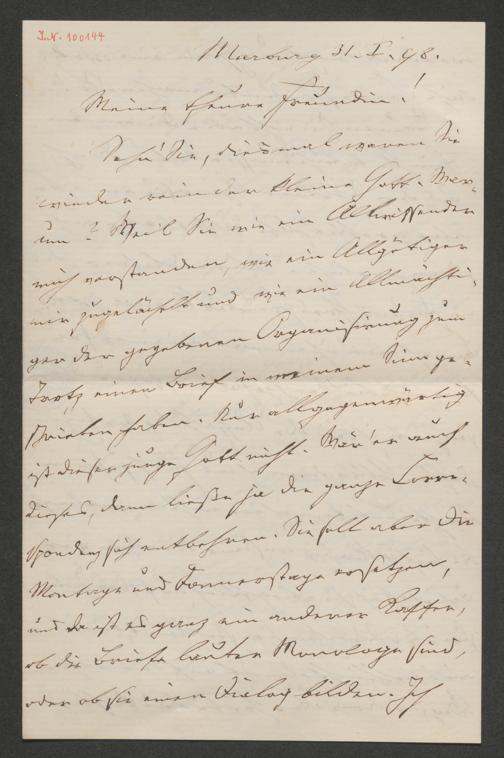 I.N. 100144
Marburg 31. I. 98.
Meine theure Freundin!
Seh'n Sie, diesmal waren Sie
wieder rein der kleine Gott. War-
um? Weil Sie wie ein Allwissender
mich verstanden, wie ein Allgütiger
mir zugelächelt und wie ein Allmächti-
ger der gegebenen Organisirung zum
Trotz einen Brief in meinem Sinn ge-
schrieben haben. Nur allgegenwärtig
ist dieser junge Gott nicht. Wär' er auch
dieses, dann ließe ja die ganze Corre-
spondenz sich entbehren. Sie soll aber die
Montage und Donnerstage ersetzen,
und da ist es ganz ein anderer Kaffee,
ob die Briefe lauter Monologe sind,
oder ob sie einen Dialog bilden. Ich